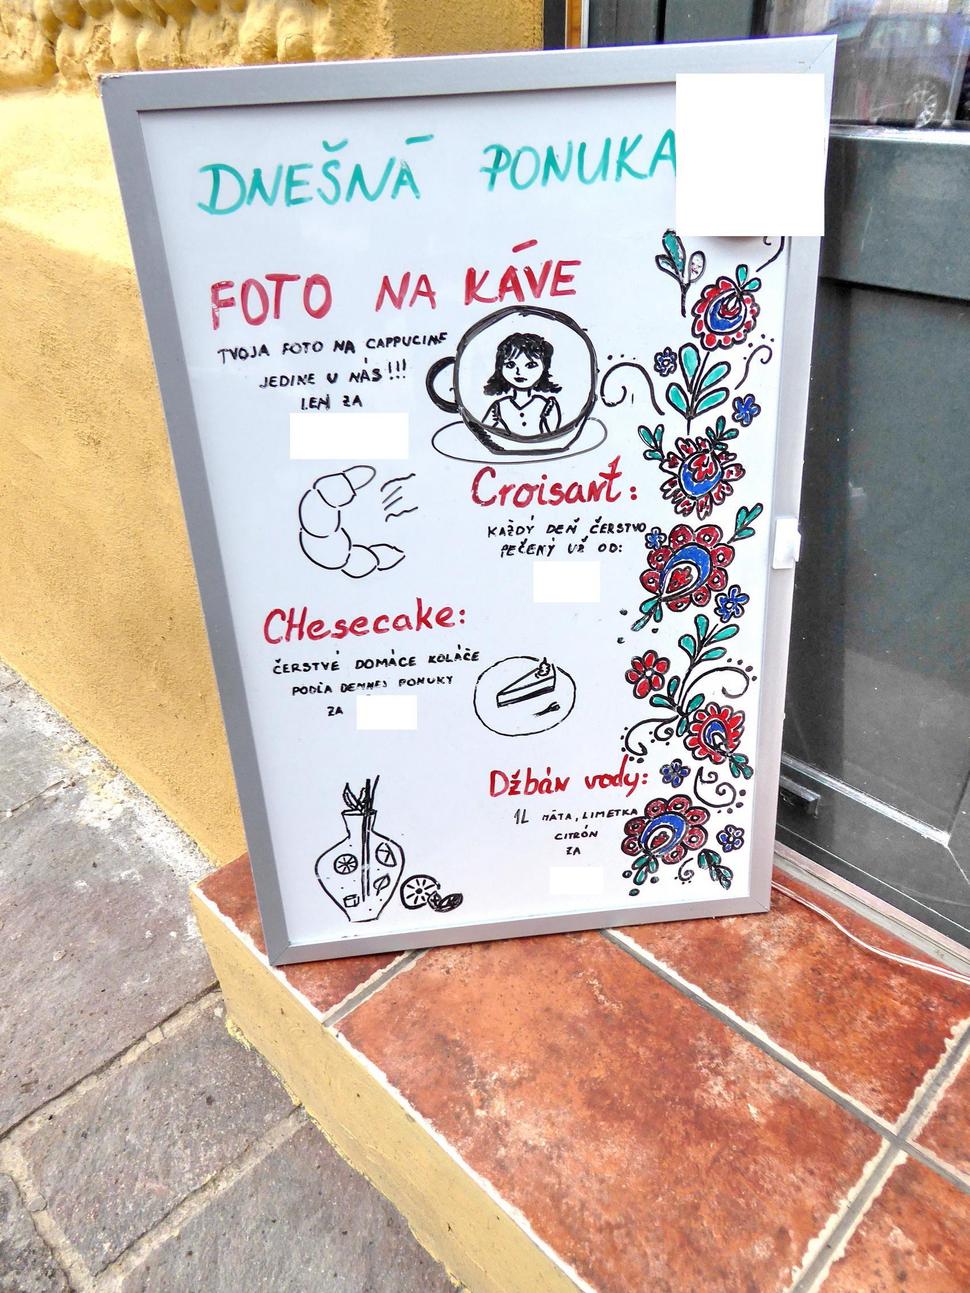 DNEŠNÁ PONUKA
FOTO NA KÁVE
TVOJA FOTO NA CAPPUCINE
JEDINE U NÁS!!!
LEN ZA
Croisant:
KAŽDÝ DEŇ ČERSTVO
PEČENÝ UŽ OD:
CHesecake:
ČERSTVÉ DOMÁCE KOLÁČE
PODĽA DENNEJ PONUKY
ZA
Džbán vody:
1L MÄTA, LIMETKA
CITRÓN
ZA